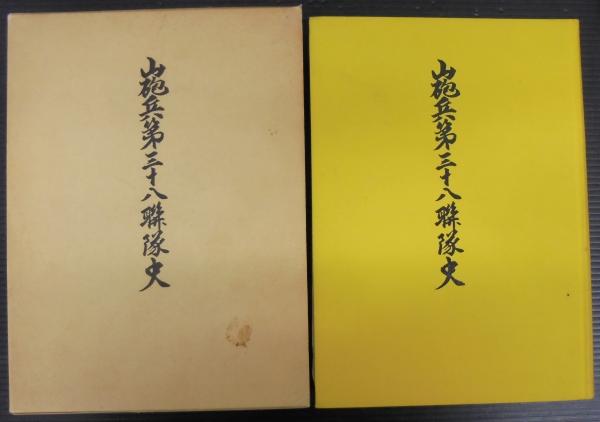 山砲兵第三十八聯隊史
山砲兵第三十八聯隊史